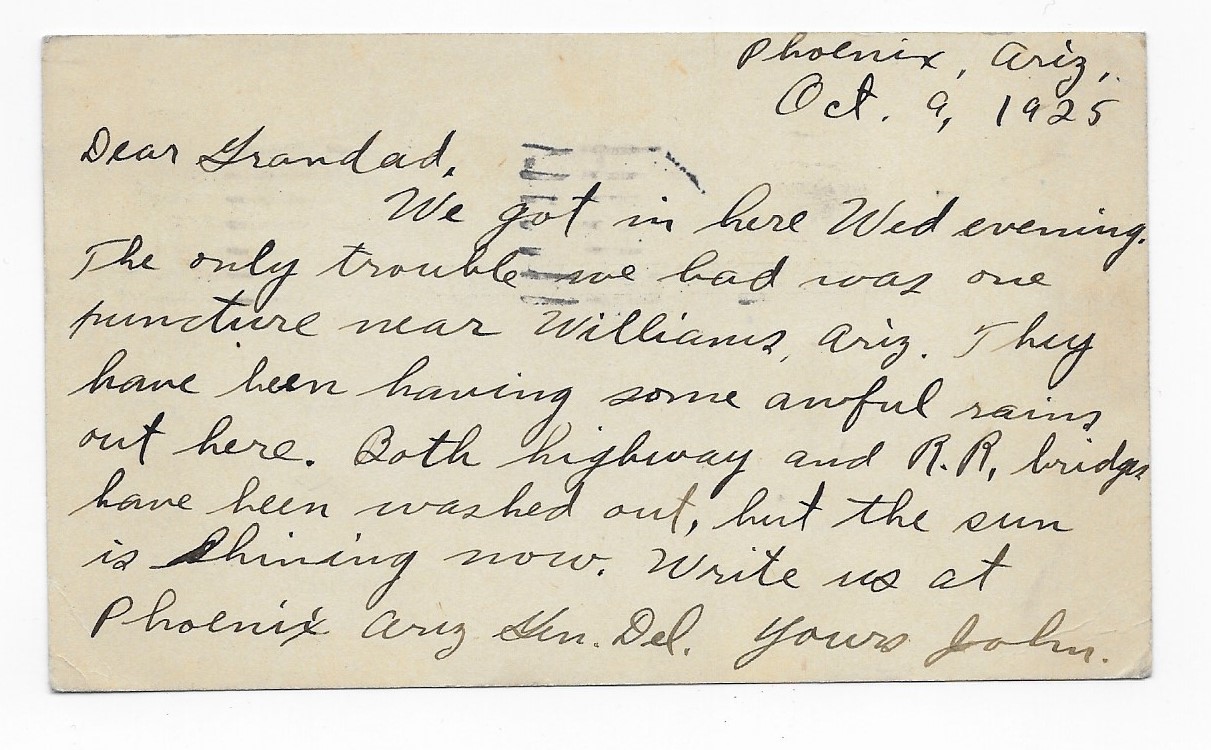 Phoenix, Ariz,
Oct. 9, 1925
Dear Grandad,
We got in here Wed evening.
The only trouble we had was one
puncture near Williams, Ariz. They
have been having some awful rains
out here. Both highway and R.R. bridges
have been washed out, but the sun
is shining now. Write us at
Phoenix Ariz Gen. Del. Yours John.